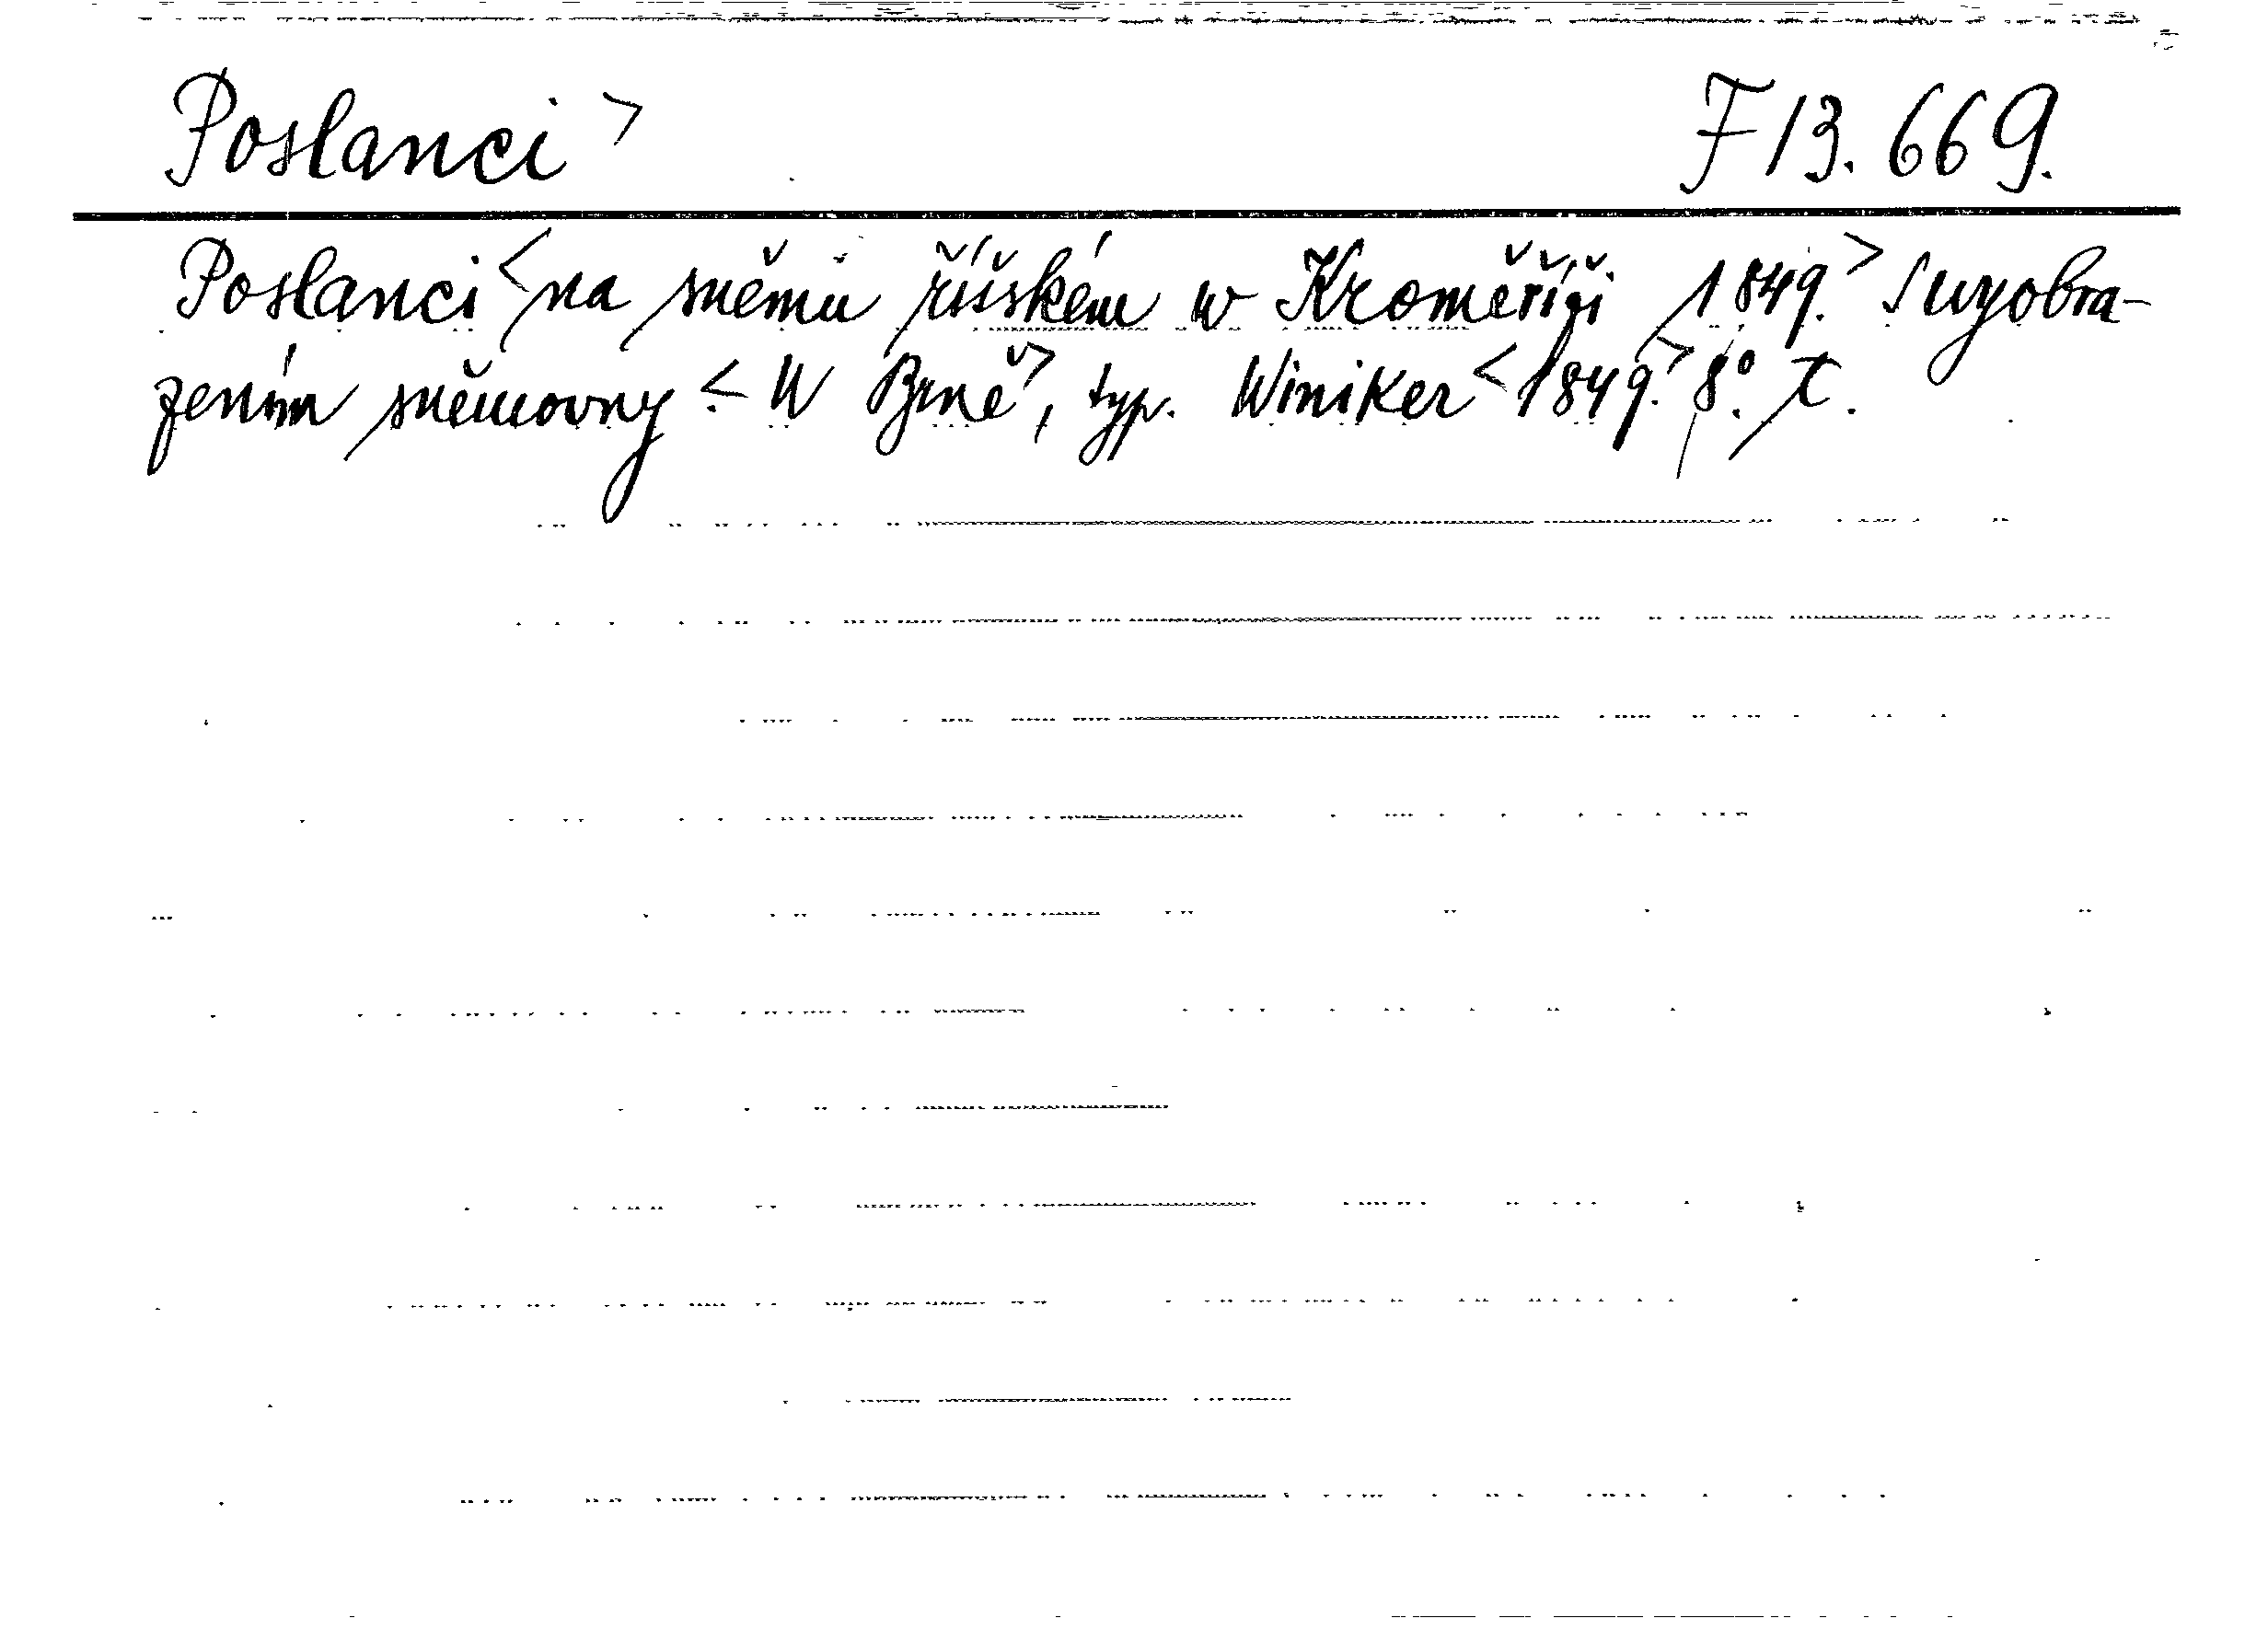 Poslanci > F 13.669.
Poslanci < na sněmu říšském w Kroměříži 1849. > S wyobra-
zením sněmovny < W Brně >, typ. Winiker < 1849. > 8°.